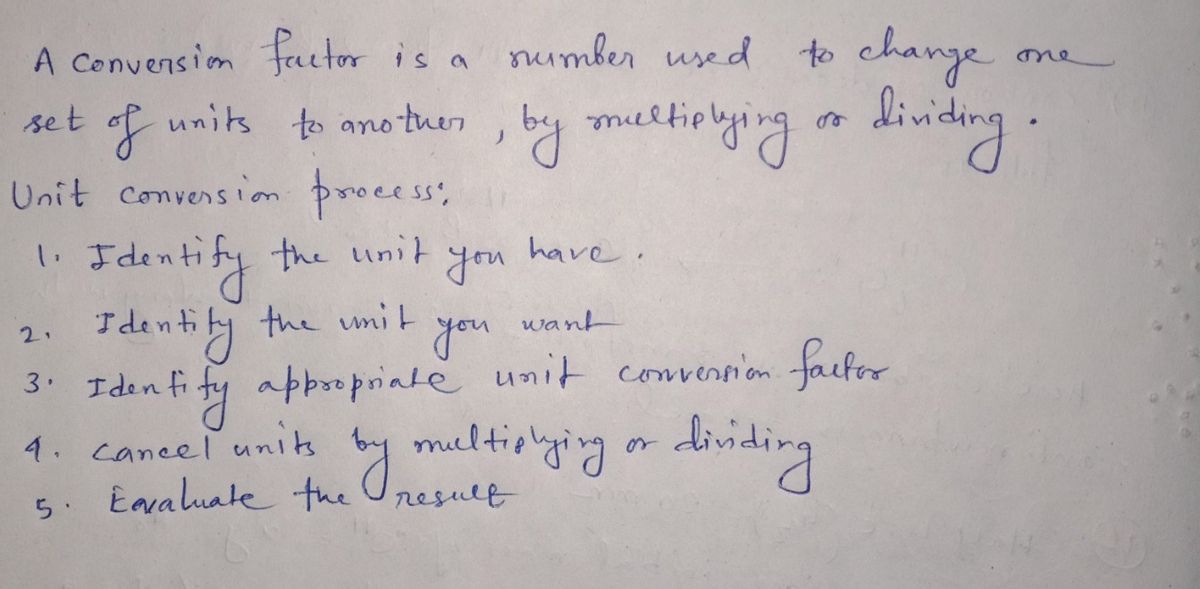 A conversion factor is a number used to change one
set of units to another , by multiplying or dividing .
Unit conversion process:
1. Identify the unit you have .
2. Identify the unit you want
3. Identify appropriate unit conversion factor
4. cancel units by multiplying or dividing
5. Eavaluate the result